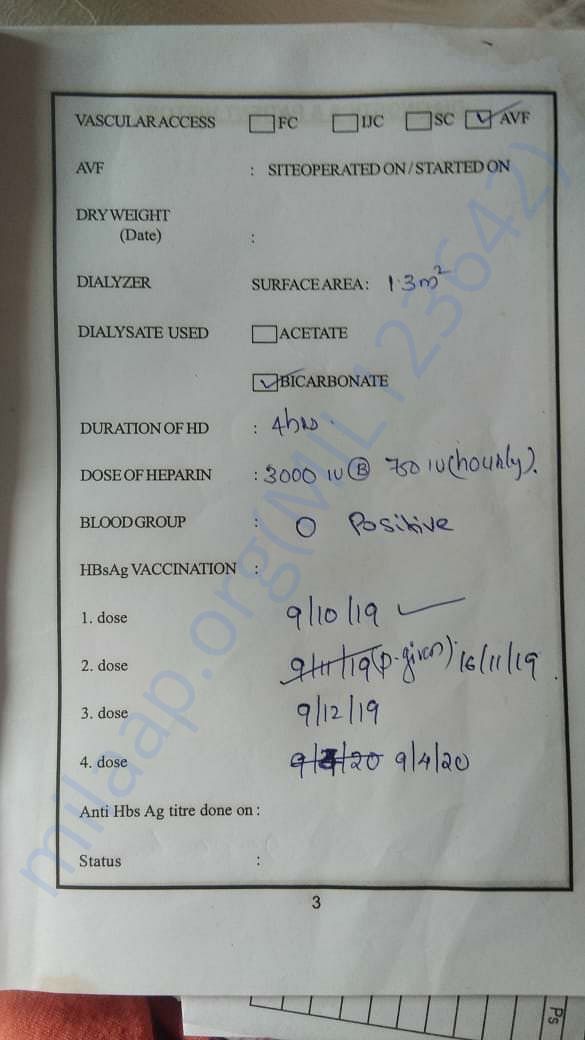 VASCULAR ACCESS FC IJC SC AVF
AVF : SITE OPERATED ON / STARTED ON
DRY WEIGHT
(Date) :
DIALYZER SURFACE AREA : 1.3m²
DIALYSATE USED ACETATE
BICARBONATE
DURATION OF HD : 4hrs.
DOSE OF HEPARIN : 3000 IU Ⓑ 750 IU (hourly).
BLOOD GROUP : O Positive
HBsAg VACCINATION :
1. dose 9/10/19
2. dose 9/11/19 (p. given) 16/11/19
3. dose 9/12/19
4. dose 9/4/20
Anti Hbs Ag titre done on :
Status :
3
Ps
milaap.org(MIL123642)